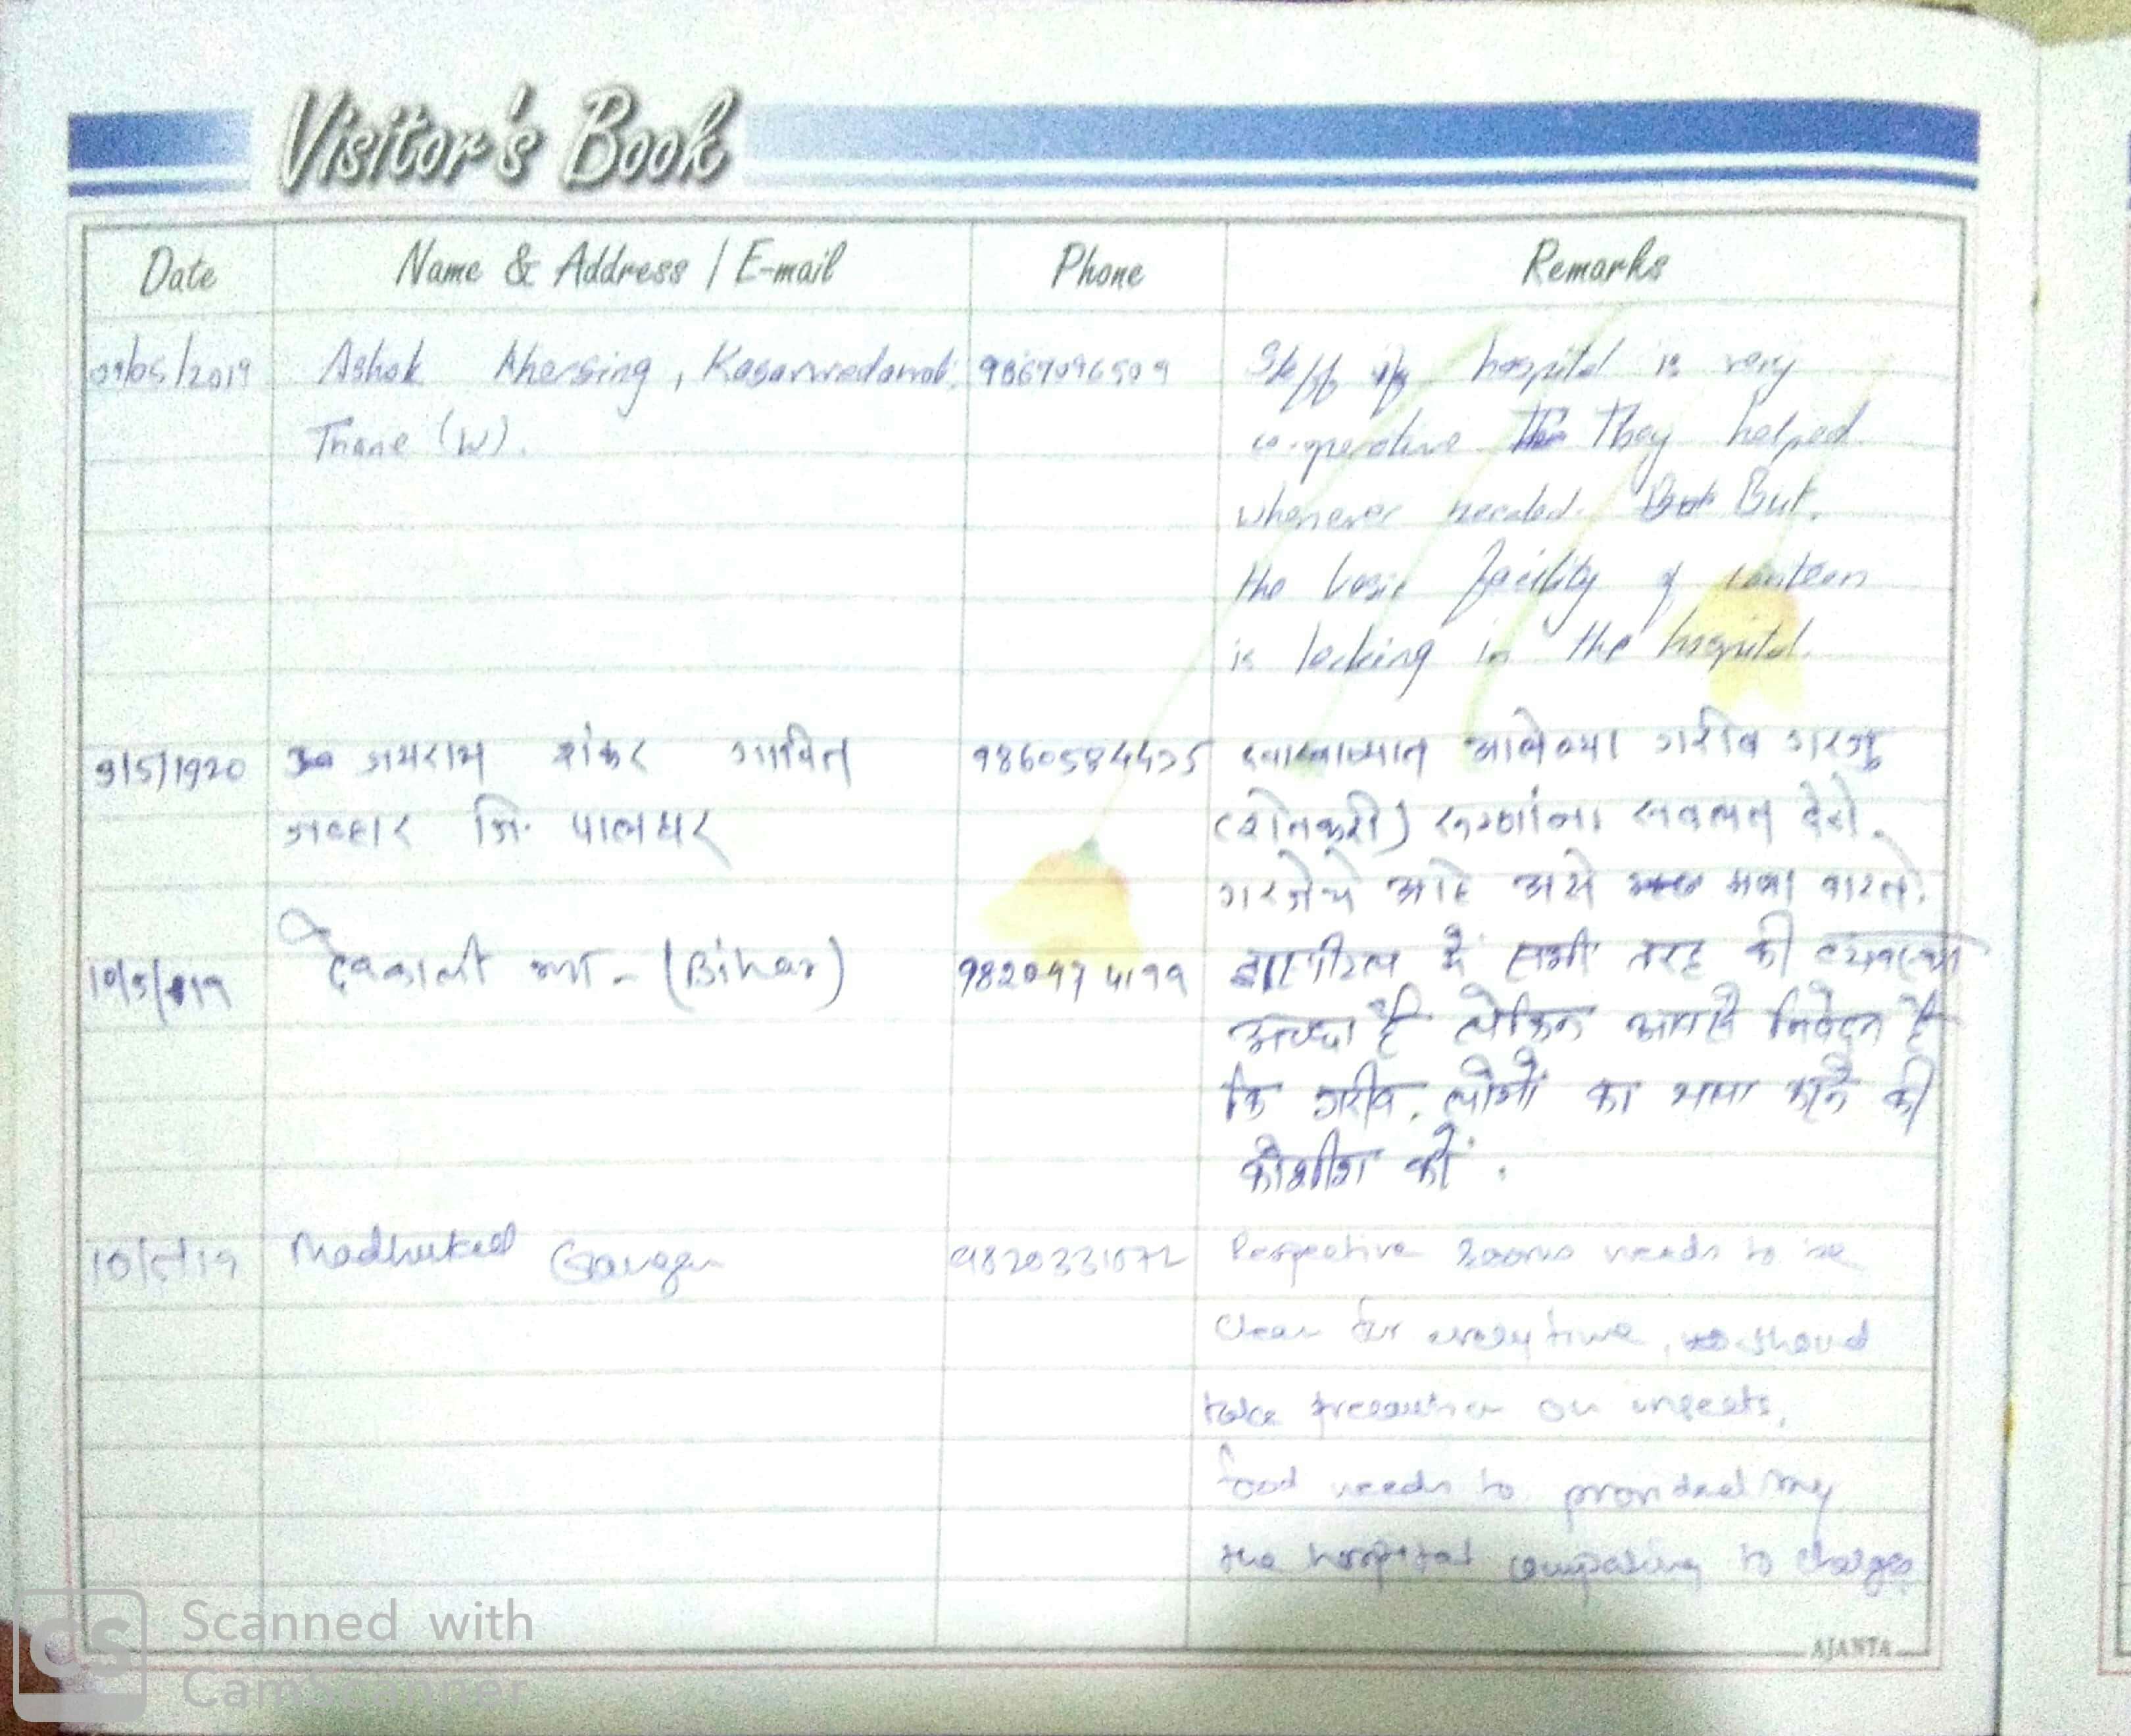 Visitor's Book
Date Name & Address / E-mail Phone Remarks
09/05/2019 Ashok Ahersing, Kasarwadavali, 9867096509 Staff of hospital is very
Thane (W). co-operative They helped
whenever needed. But
the basic facility of canteen
is lacking in the hospital.
9/5/1920 जयराम शंकर गावित 9860584425 आलेल्या गरीब गरजु
जव्हार जि. पालघर (शेतकरी) रुग्णांना सवलत देणे
गरजेचे आहे असे मला वाटते.
10/5/19 (Bihar) में सभी तरह की व्यवस्था
अच्छा है लेकिन आपसे निवेदन है
कि गरीब लोगों का भला करने की
कोशीश करें.
10/5/19 Gangan 9820331072 Respective rooms needs to be
clean for everytime, should
take precaution on insects,
food needs to provided by
the hospital comparing to charges
AJANTA
Scanned with
CS CamScanner